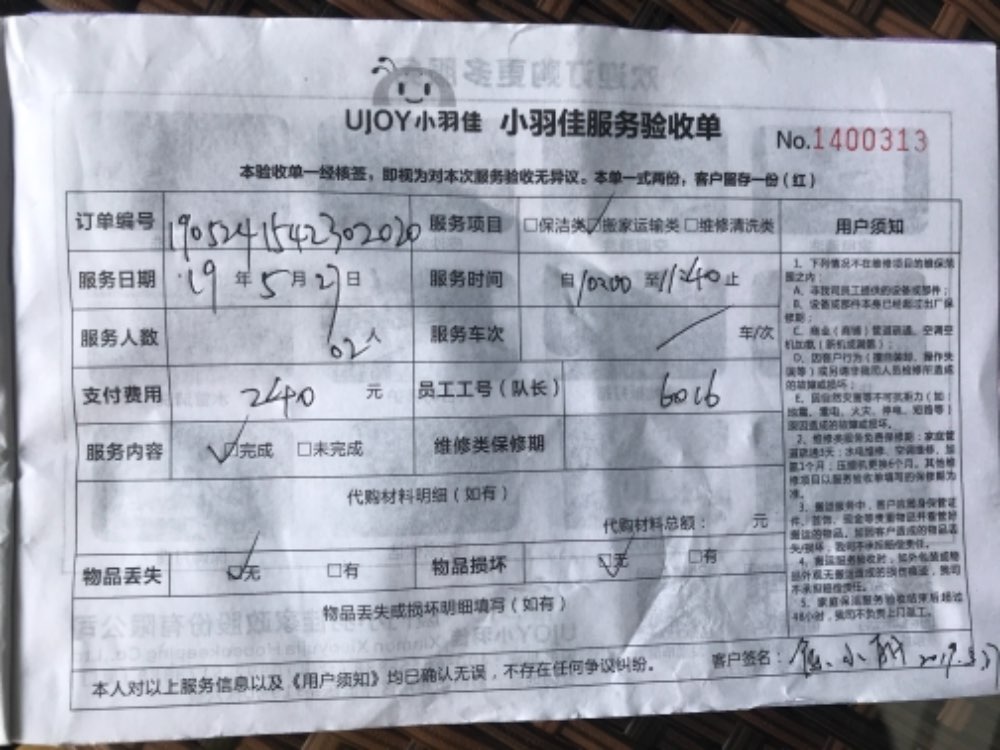 UJOY小羽佳 小羽佳服务验收单
No.1400313
本验收单一经核签，即视为对本次服务验收无异议。本单一式两份，客户留存一份（红）
订单编号 1905241542302020 服务项目 □保洁类 ☑搬家运输类 □维修清洗类 用户须知
服务日期 19年5月27日 服务时间 自10:00至11:40止
服务人数 02人 服务车次 车/次
支付费用 2410元 员工工号（队长） 6016
服务内容 ☑完成 □未完成 维修类保修期
代购材料明细（如有）
代购材料总额： 元
物品丢失 ☑无 □有 物品损坏 ☑无 □有
物品丢失或损坏明细填写（如有）
本人对以上服务信息以及《用户须知》均已确认无误，不存在任何争议纠纷。 客户签名：
1、下列情况不在维修项目的维保范围之内：
A、非我司员工提供的设备或部件；
B、设备或部件本身已经超过出厂保修期；
C、商业（商铺）管道疏通、空调空机加氨（新机或漏氨）；
D、因客户行为（擅自装卸、操作失误等）或另请非我司人员检修所造成的故障或损坏；
E、因自然灾害等不可抗拒力（如：地震、雷电、火灾、停电、短路等）原因造成的故障或损坏。
2、维修类服务免费保修期：家庭管道疏通3天；水电维修、空调维修、加氨1个月；压缩机更换6个月。其他维修项目以服务验收单填写的保修期为准。
3、搬运服务中，客户应随身保管证件、首饰、现金等贵重物品并看管好搬运的物品，如因客户造成的物品丢失/损坏，我司不承担赔偿责任。
4、搬运服务验收时，如外包装或物品外观无搬运造成的损伤痕迹，我司不承担赔偿责任。
5、家庭保洁服务验收结束后超过48小时，我司不负责上门返工。